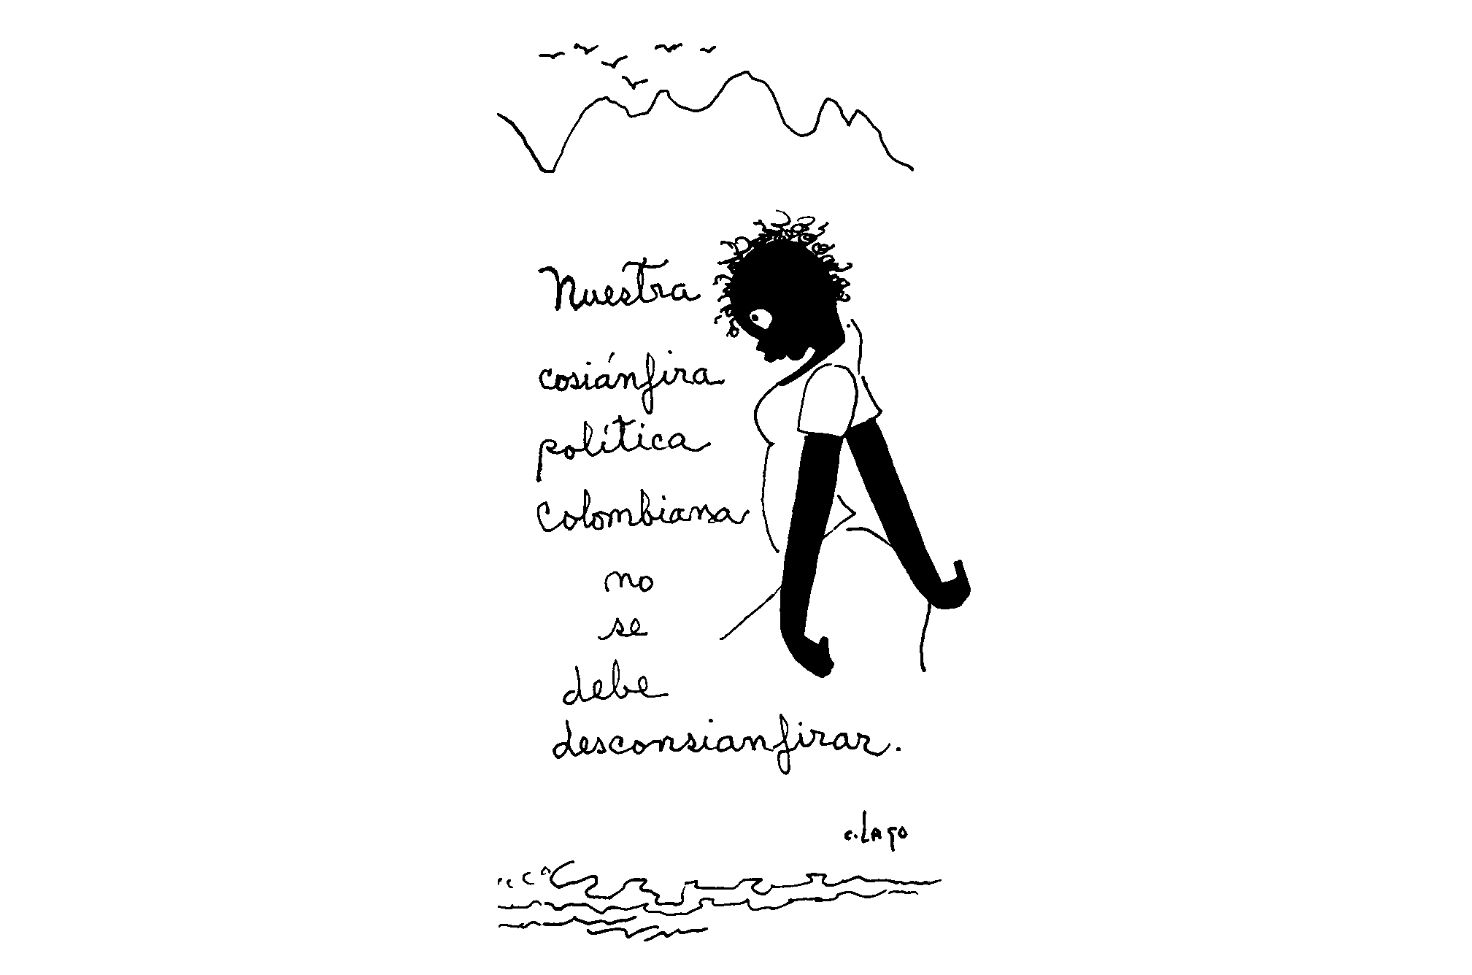 Nuestra
cosiánfira
política
Colombiana
no
se
debe
desconsianfirar.
c. Lago